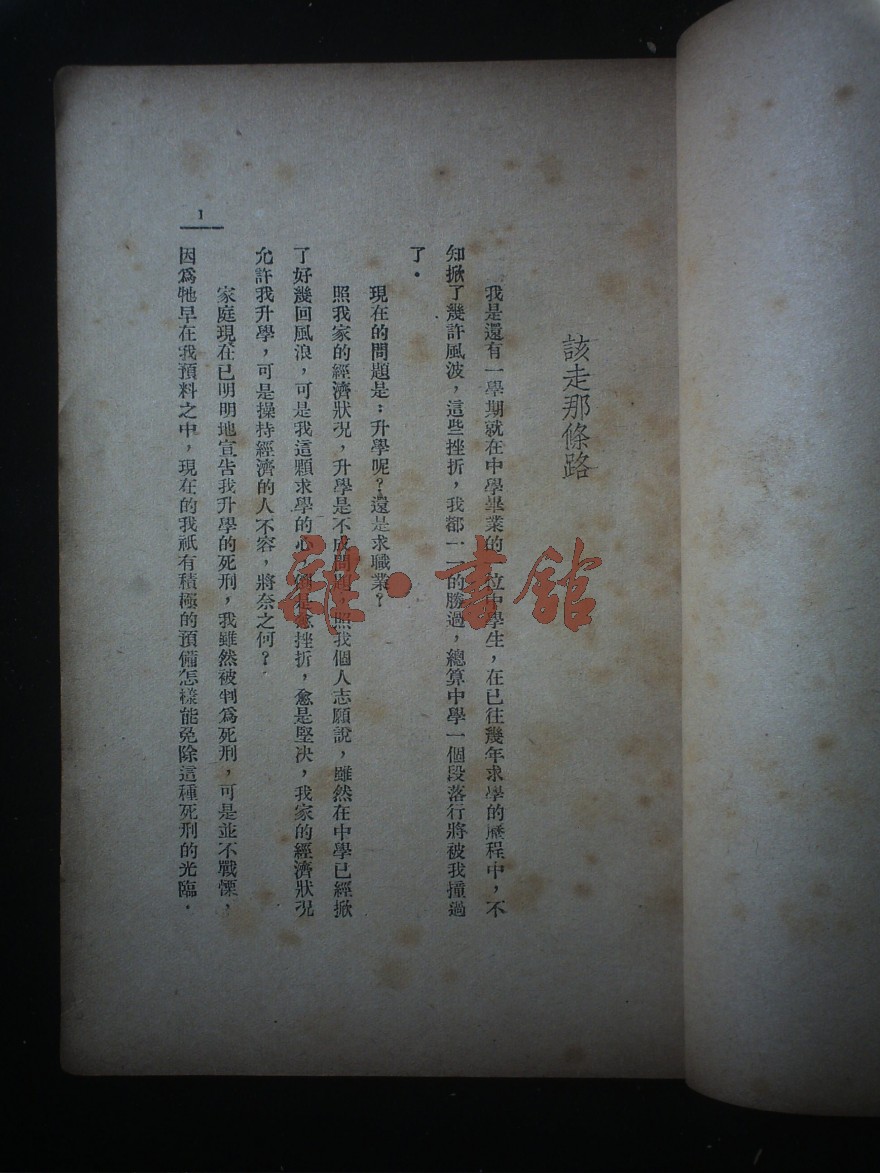 該走那條路
我是還有一學期就在中學畢業的一位中學生，在已往幾年求學的歷程中，不
知掀了幾許風波，這些挫折，我都一一的勝過，總算中學一個段落行將被我撞過
了．
現在的問題是：升學呢？還是求職業？
照我家的經濟狀況，升學是不成問題，照我個人志願說，雖然在中學已經掀
了好幾回風浪，可是我這顆求學的心，倒是愈挫折，愈是堅决，我家的經濟狀况
允許我升學，可是操持經濟的人不容，將奈之何？
家庭現在已明明地宣告我升學的死刑，我雖然被判爲死刑，可是並不戰慄，
因爲牠早在我預料之中，現在的我祇有積極的預備怎樣能免除這種死刑的光臨．
1
雜·書館